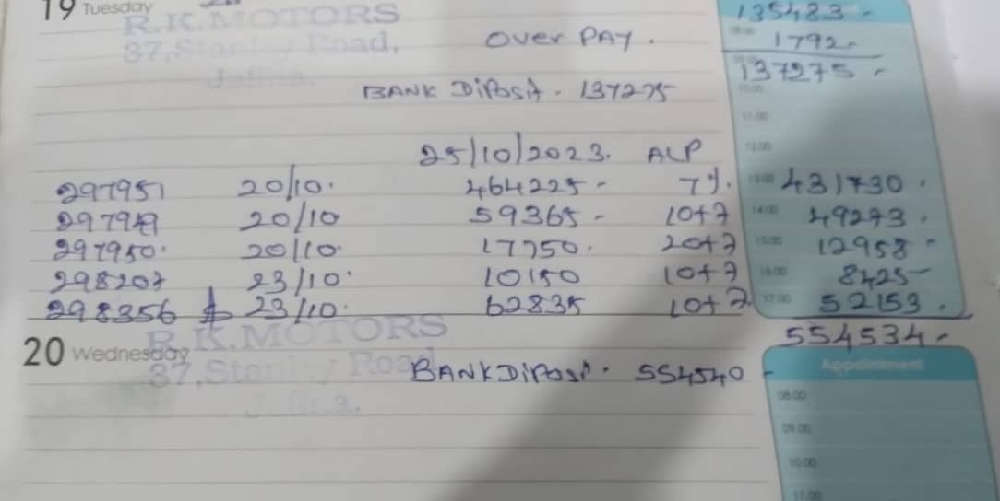 19 Tuesday
R.K.MOTORS
37, Stanley Road,
Jaffna.
135483-
Over PAY. 1792-
137275-
BANK Diposit. 137275
25/10/2023. ALP
297951 20/10. 464225- 7%. 431730.
297949 20/10 59365- 10+7 49273.
297950. 20/10. 17750. 20+7 12958-
298207 23/10. 10150 10+7 8425-
298356 23/10. 62835 10+7. 52153.
554539-
20 Wednesday
R.K.MOTORS
37, Stanley Road
Jaffna.
BANK Diposi. 554540-
Appointment
08.00
09.00
10.00
11.00